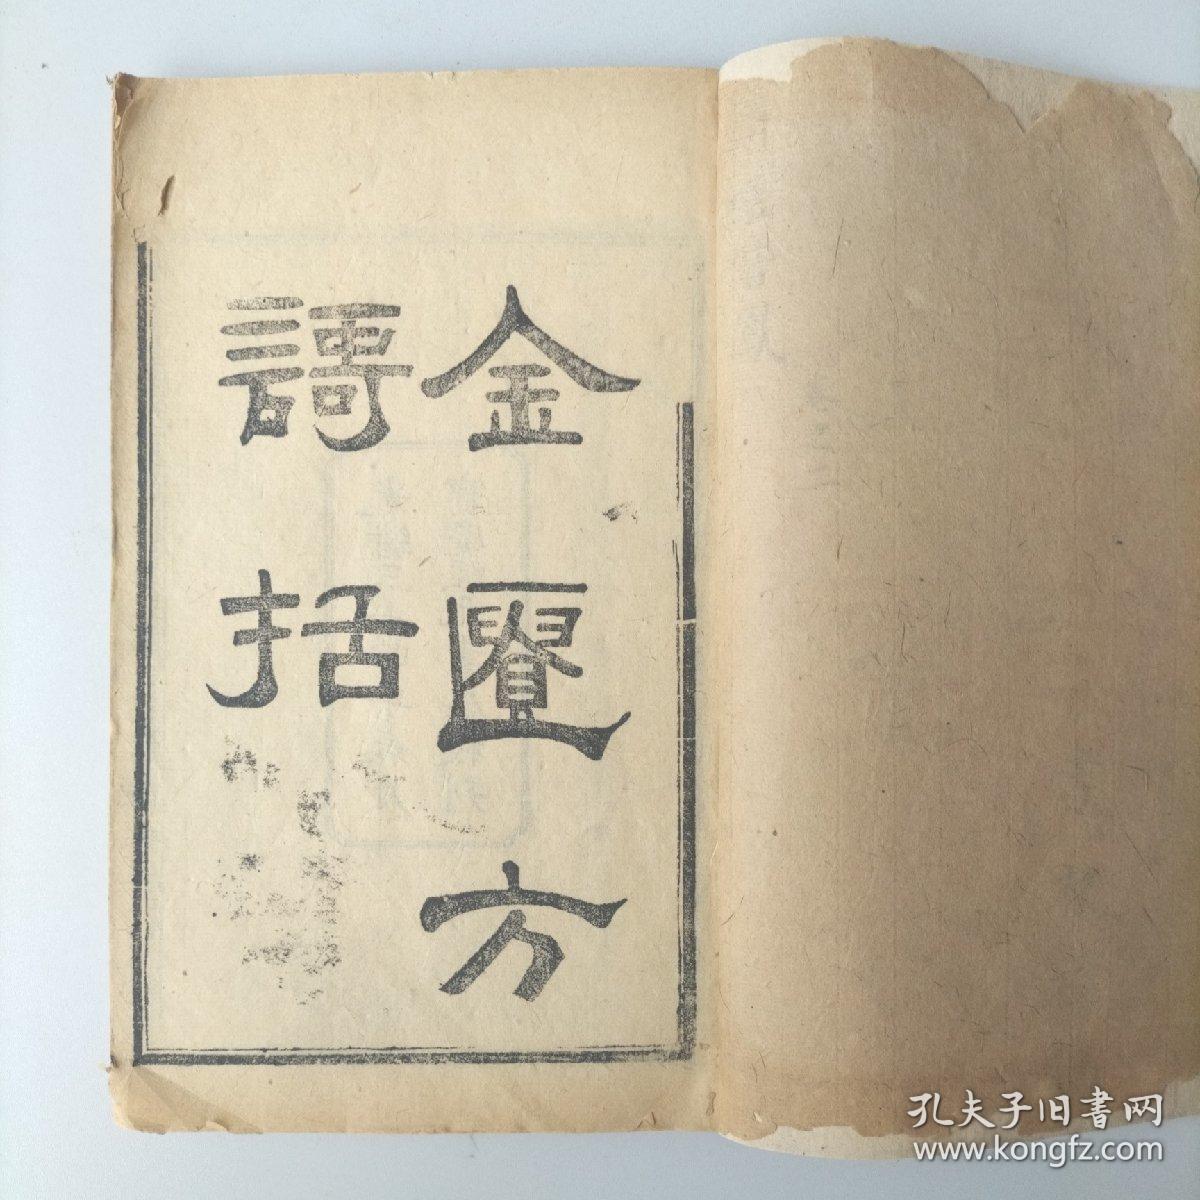 金匱方
謌括
孔夫子旧书网
www.kongfz.com